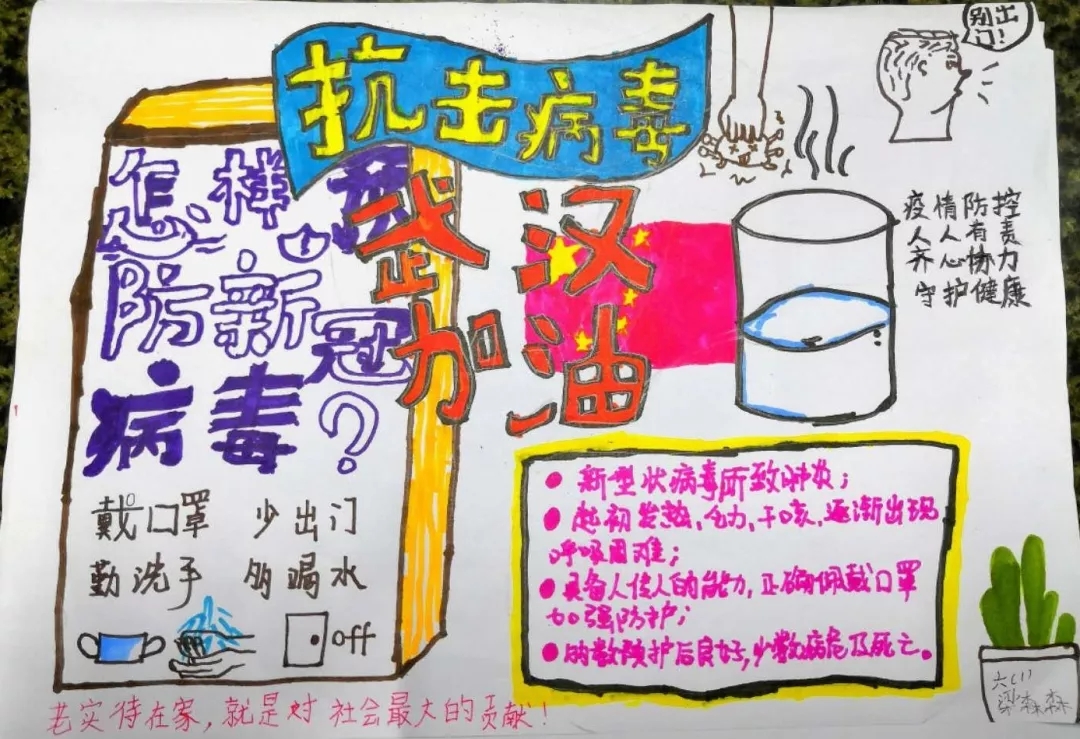 抗击病毒
别出
门!
怎样
防新冠
病毒?
武汉
加油
疫情防控
人人有责
齐心协力
守护健康
戴口罩 少出门
勤洗手 多喝水
off
● 新型状病毒所致肺炎;
● 起初发热,乏力,干咳,逐渐出现
呼吸困难;
● 具备人传人的能力,正确佩戴口罩
加强防护;
● 数预护后良好,少数病危及死亡。
老实待在家,就是对社会最大的贡献!
六(1)
梁森森